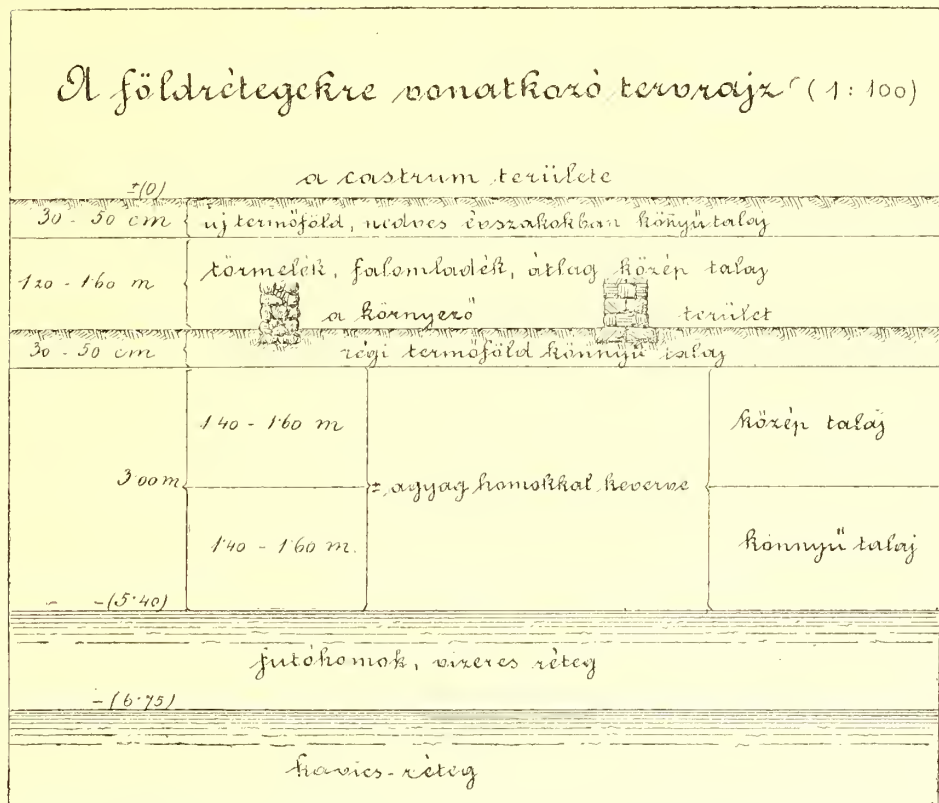 A földrétegekre vonatkozó tervrajz (1:100)
a castrum területe
±(0)
30 - 50 cm új termőföld, nedves évszakokban könyű talaj
1·20 - 1·60 m törmelék, falomladék, átlag közép talaj
a környező terület
30 - 50 cm régi termőföld könnyű talaj
1·40 - 1·60 m közép talaj
3·00 m ± agyag homokkal keverve
1·40 - 1·60 m. könnyű talaj
-(5·40)
futóhomok, vizeres réteg
-(6·75)
kavics-réteg